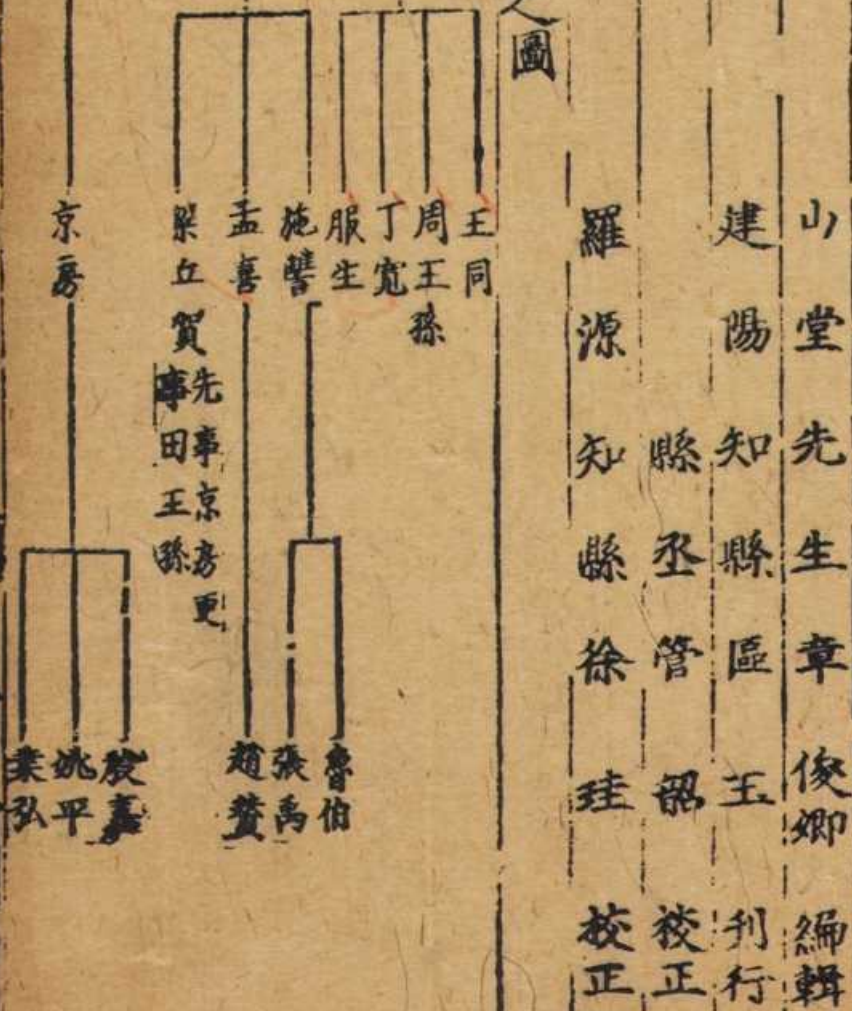 山堂先生章俊卿編輯
建陽知縣區玉刊行
縣丞管韶校正
羅源知縣徐珪校正
之圖
王同
周王孫
丁寬
服生
施讐
魯伯
張禹
孟喜
趙
梁丘賀
先事京房更
事田王孫
京房
殷嘉
姚平
弘